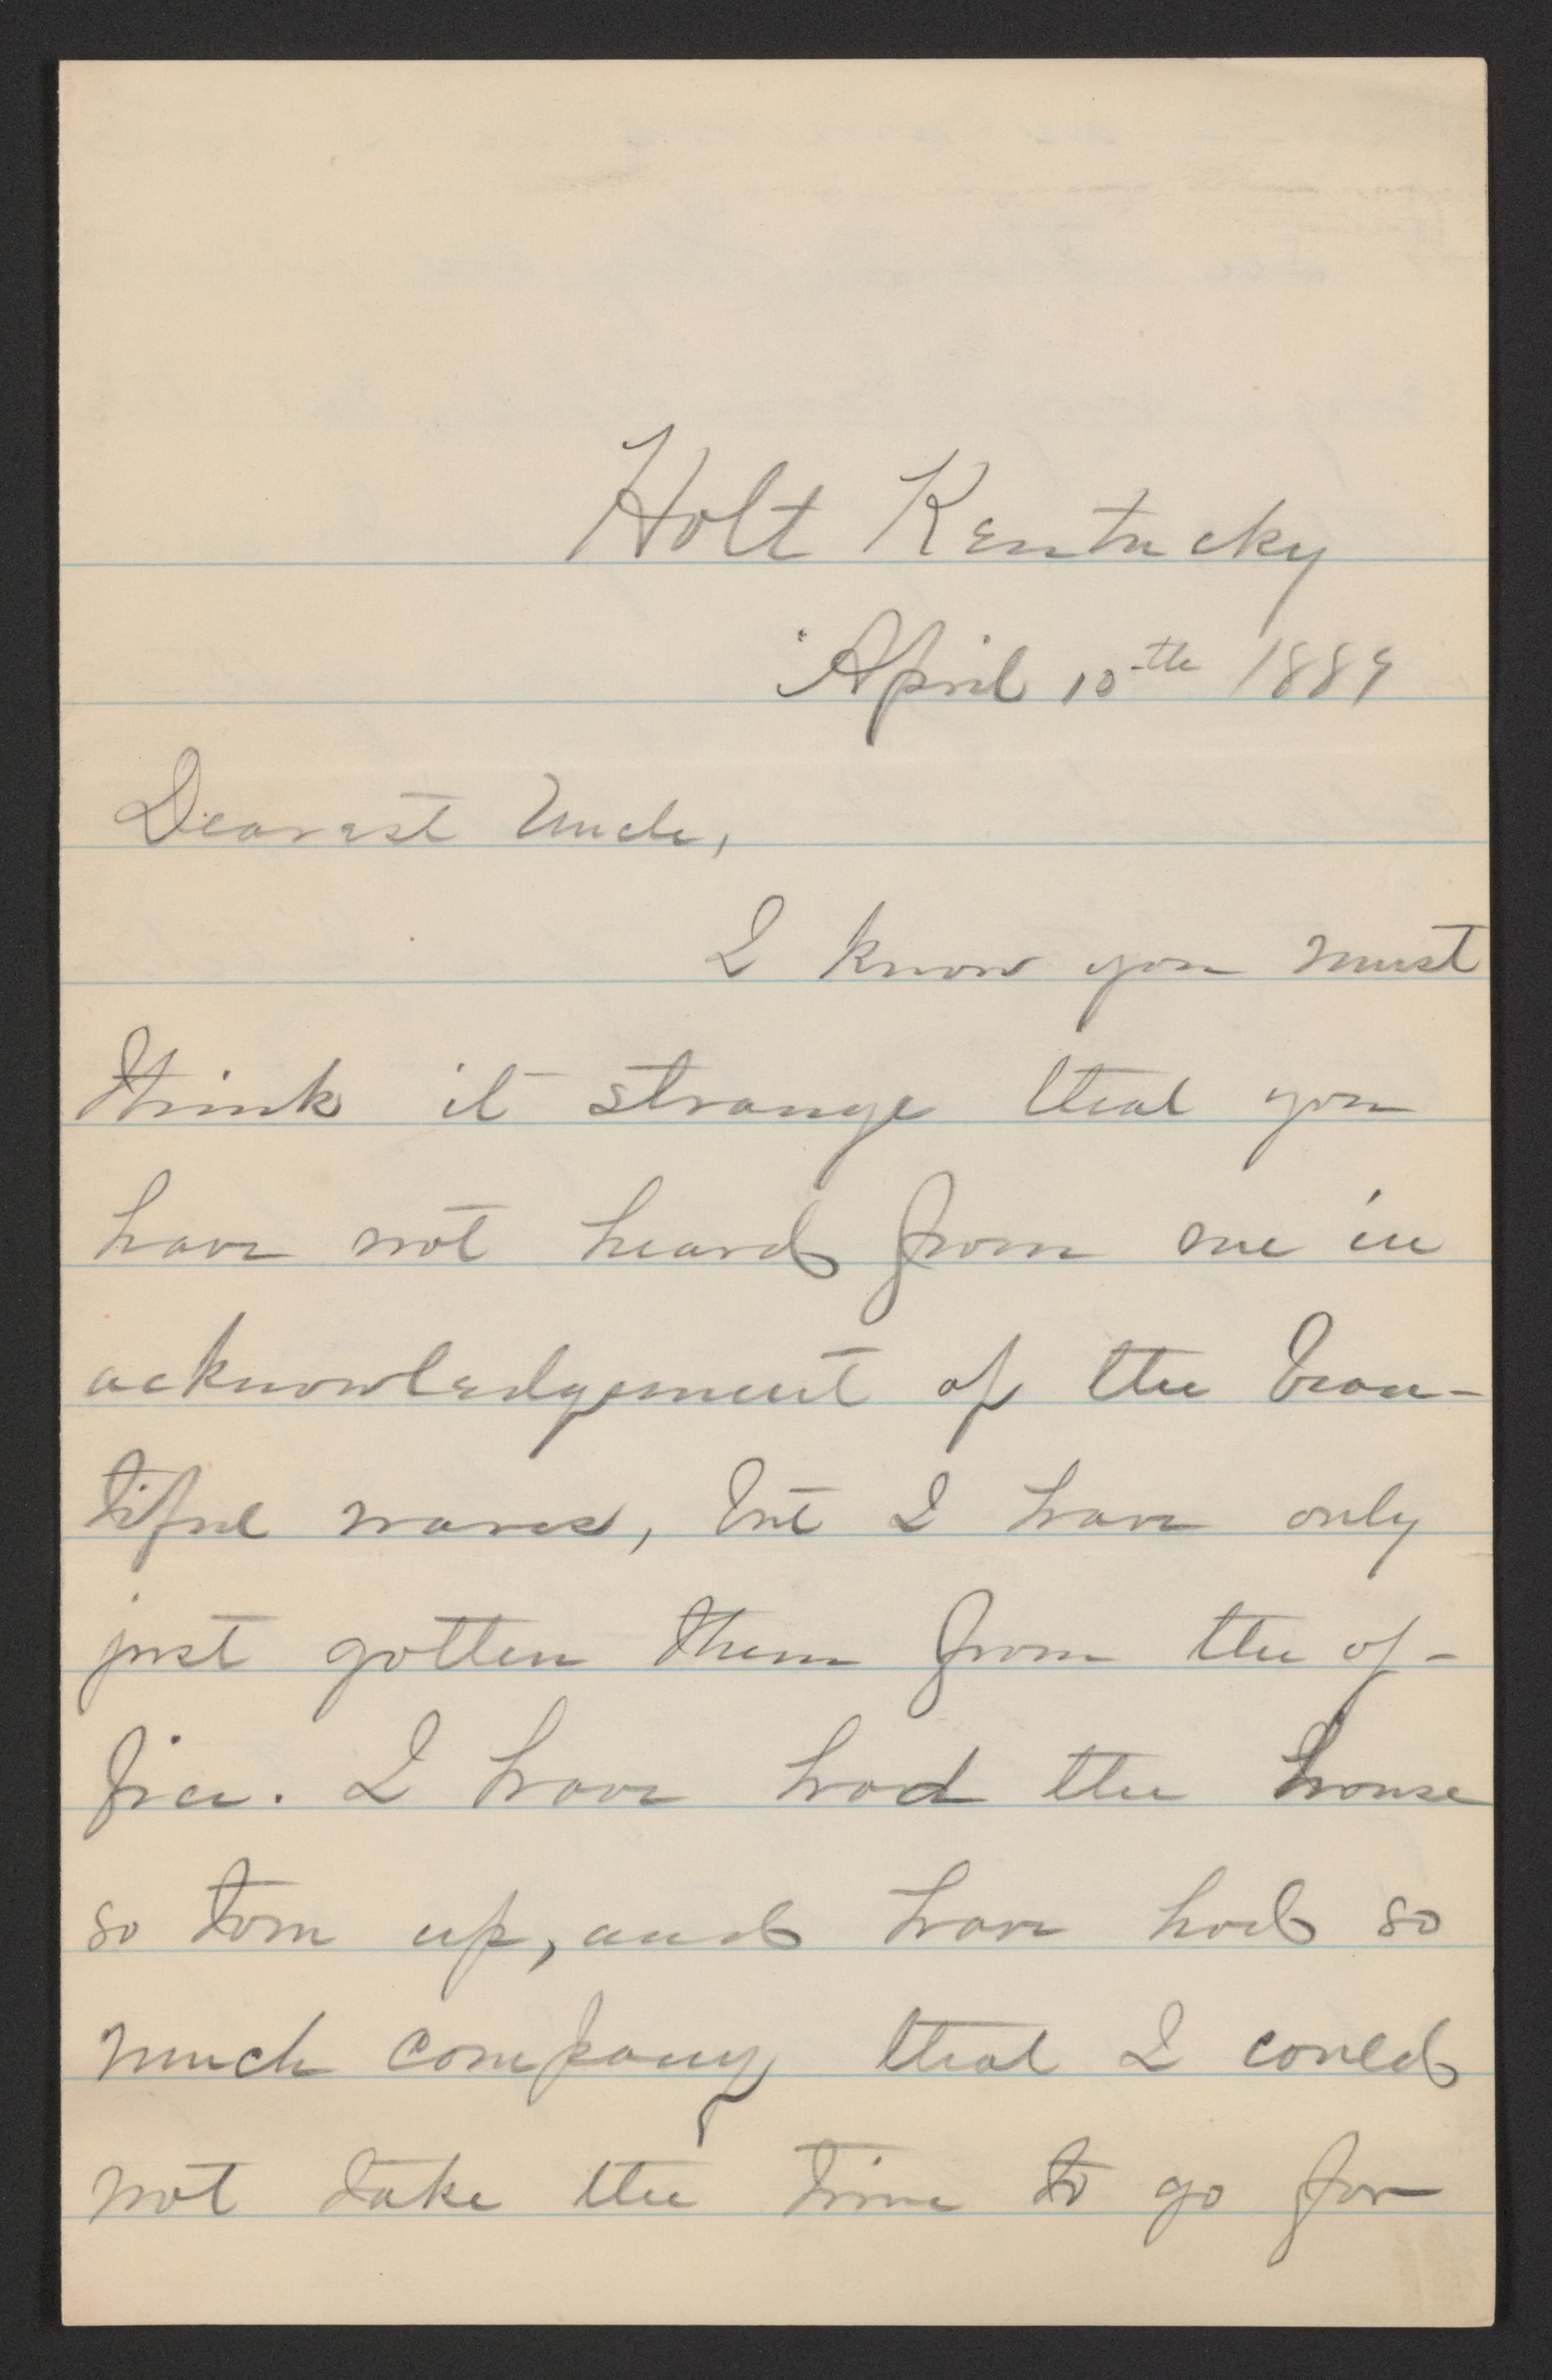 Holt Kentucky
April 10th 1889
Dearest Uncle,
I know you must
think it strange that you
have not heard from me in
acknowledgement of the beau-
tiful vases, but I have only
just gotten them from the of-
fice. I have had the house
so torn up, and have had so
much company that I could
not take the time to go for